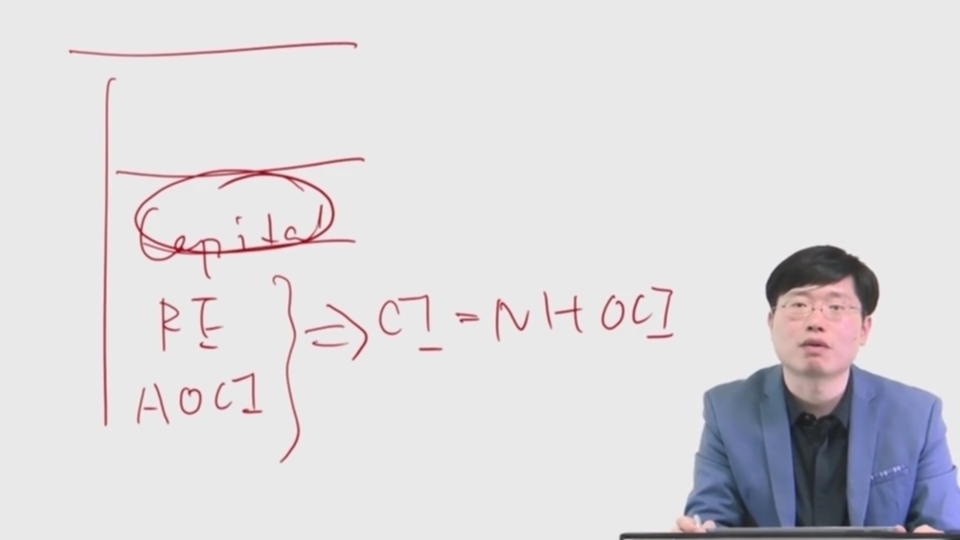 Capital
RE
AOCI
⇒ CI = NI+OCI